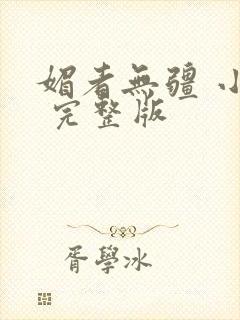 媚者無疆 小
完整版
胥學冰